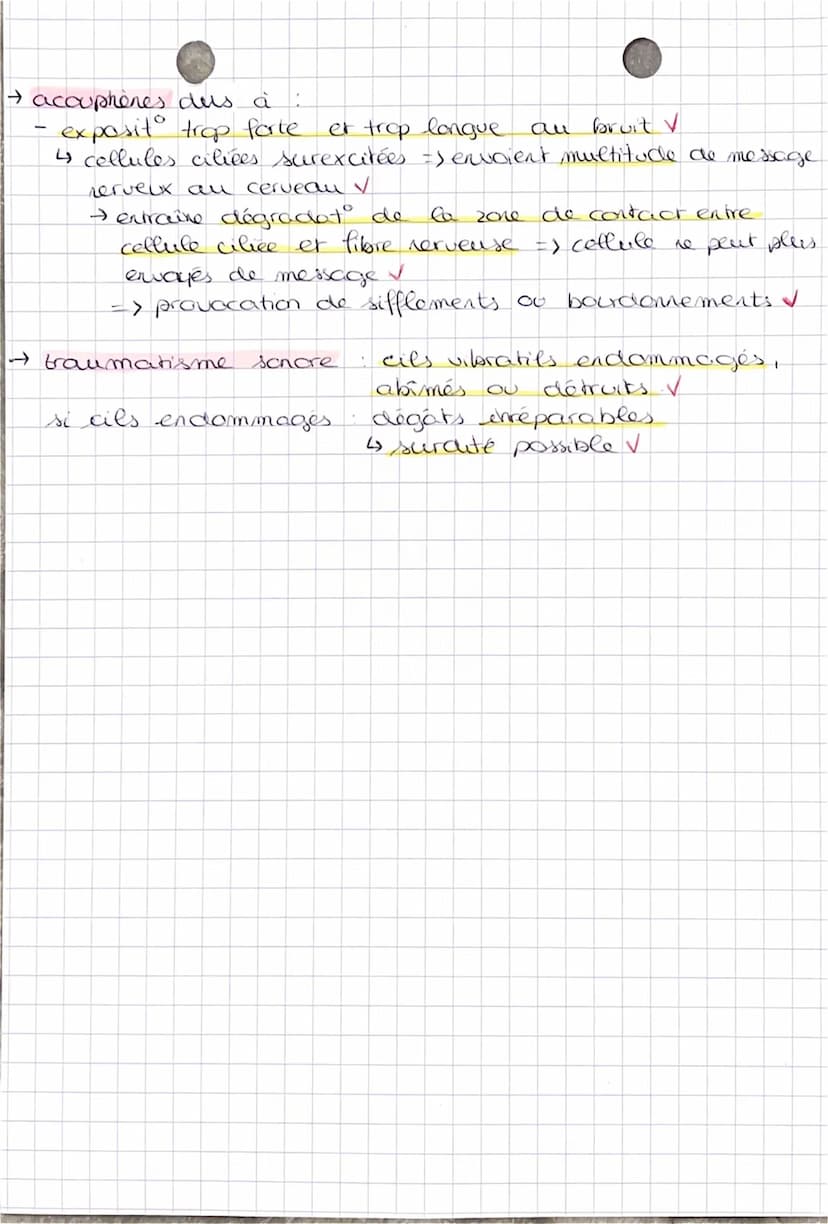 → acouphènes dus à :
- exposit° trop forte et trop longue au bruit ✓
↳ cellules ciliées surexcitées => envoient multitude de message
nerveux au cerveau ✓
→ entraine dégradat° de la zone de contact entre
cellule ciliée et fibre nerveuse => cellule ne peut plus
envoyés de message ✓
=> provocation de sifflements ou bourdonnements ✓
→ traumatisme sonore : cils vibratils endommagés,
abîmés ou détruits ✓
si cils endommagés : dégâts irréparables
↳ surdité possible ✓